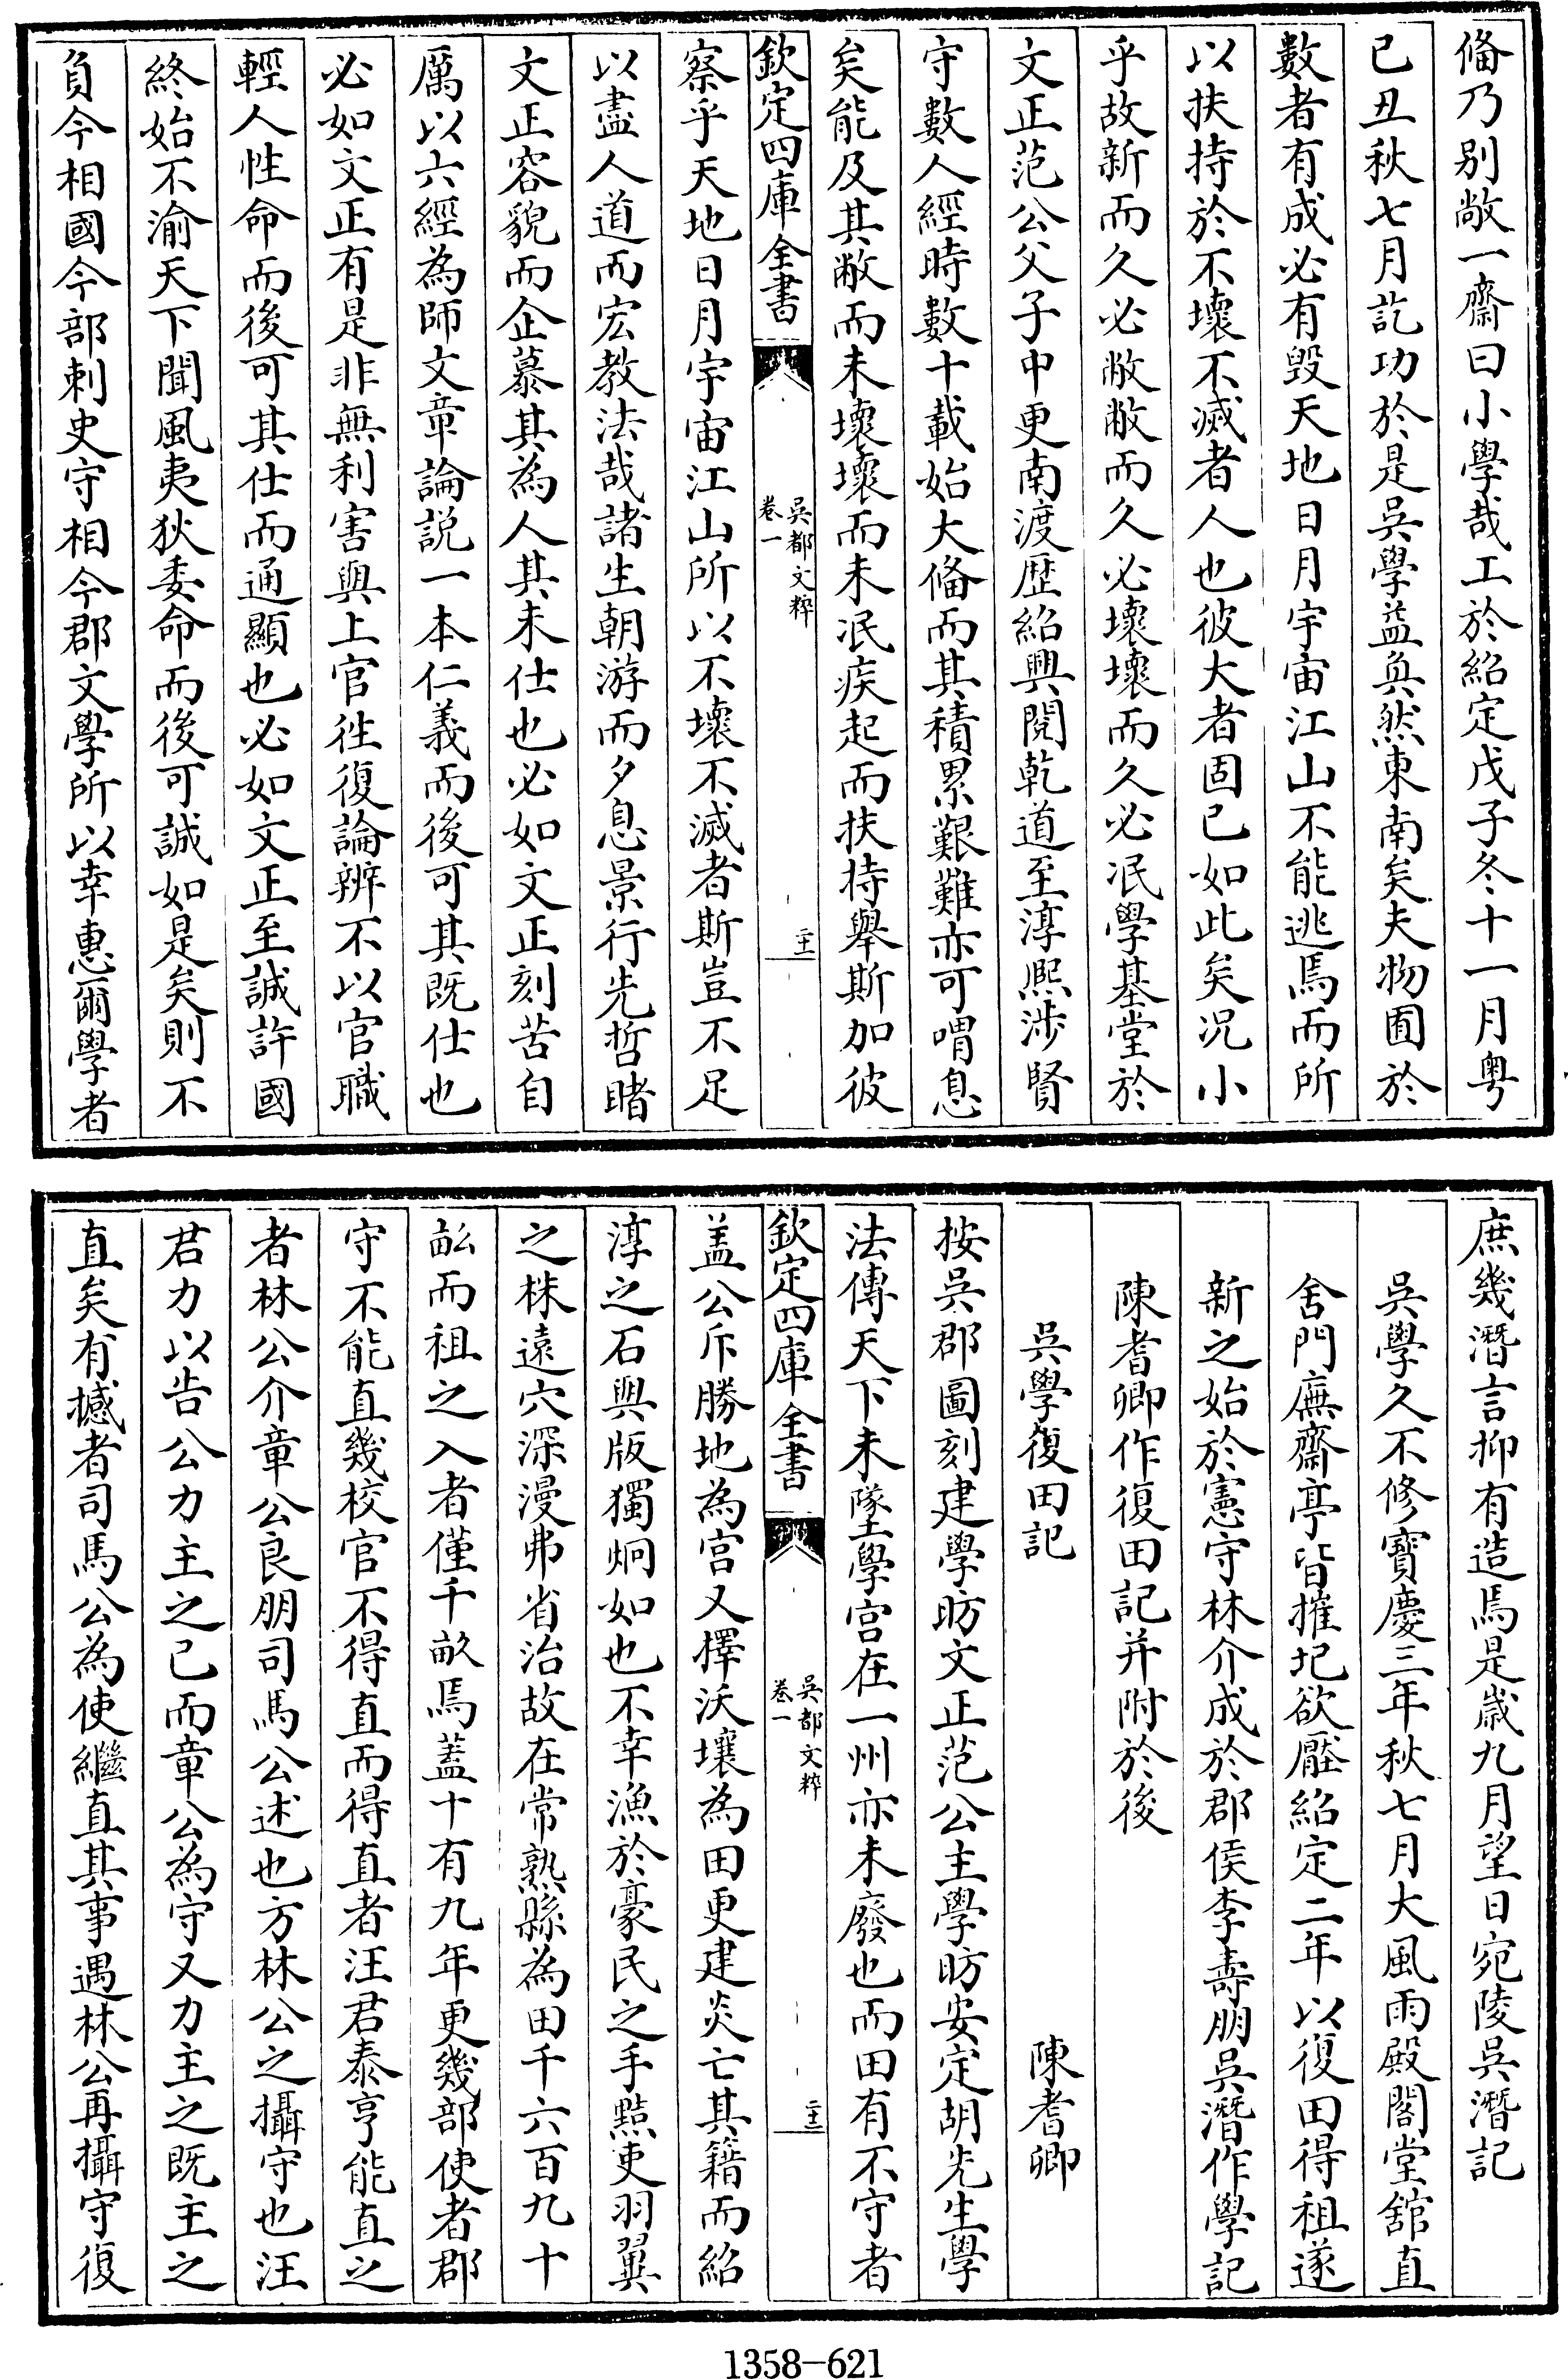 偹乃别敞一齋曰小學哉工於紹定戊子冬十一月粤
已丑秋七月訖功於是吳學益奐然東南矣夫物囿於
數者有成必有毁天地日月宇宙江山不能逃焉而所
以扶持於不壞不滅者人也彼大者固已如此矣况小
乎故新而久必敝敝而久必壞壞而久必泯學基堂於
文正范公父子中更南渡歴紹興閱乾道至淳熈涉賢
守數人經時數十載始大偹而其積累艱難亦可喟息
矣能及其敝而未壞壞而未泯疾起而扶持舉斯加彼
欽定四庫全書
吳都文粹
卷一
二十一
察乎天地日月宇宙江山所以不壞不滅者斯豈不足
以盡人道而宏教法哉諸生朝游而夕息景行先哲睹
文正容貌而企慕其為人其未仕也必如文正刻苦自
厲以六經為師文章論説一本仁義而後可其既仕也
必如文正有是非無利害與上官徃復論辨不以官職
輕人性命而後可其仕而通顯也必如文正至誠許國
終始不渝天下聞風夷狄委命而後可誠如是矣則不
負今相國今部刺史守相今郡文學所以幸惠爾學者
庶幾潛言抑有造焉是歲九月望日宛陵吳潛記
吳學久不修寳慶三年秋七月大風雨殿閣堂舘直
舍門廡齋亭皆摧圯欲壓紹定二年以復田得租遂
新之始於憲守林介成於郡侯李壽朋吳潛作學記
陳耆卿作復田記并附於後
吳學復田記　陳耆卿
按吳郡圖刻建學昉文正范公主學昉安定胡先生學
法傳天下未墜學宫在一州亦未廢也而田有不守者
欽定四庫全書
吳都文粹
卷一
二十二
盖公斥勝地為宫又擇沃壤為田更建炎亡其籍而紹
淳之石與版獨炯如也不幸漁於豪民之手黠吏羽翼
之株遠穴深漫弗省治故在常熟縣為田千六百九十
畝而租之入者僅千畝焉蓋十有九年更幾部使者郡
守不能直幾校官不得直而得直者汪君泰亨能直之
者林公介章公良朋司馬公述也方林公之攝守也汪
君力以告公力主之已而章公為守又力主之既主之
直矣有撼者司馬公為使繼直其事遇林公再攝守復
1358-621